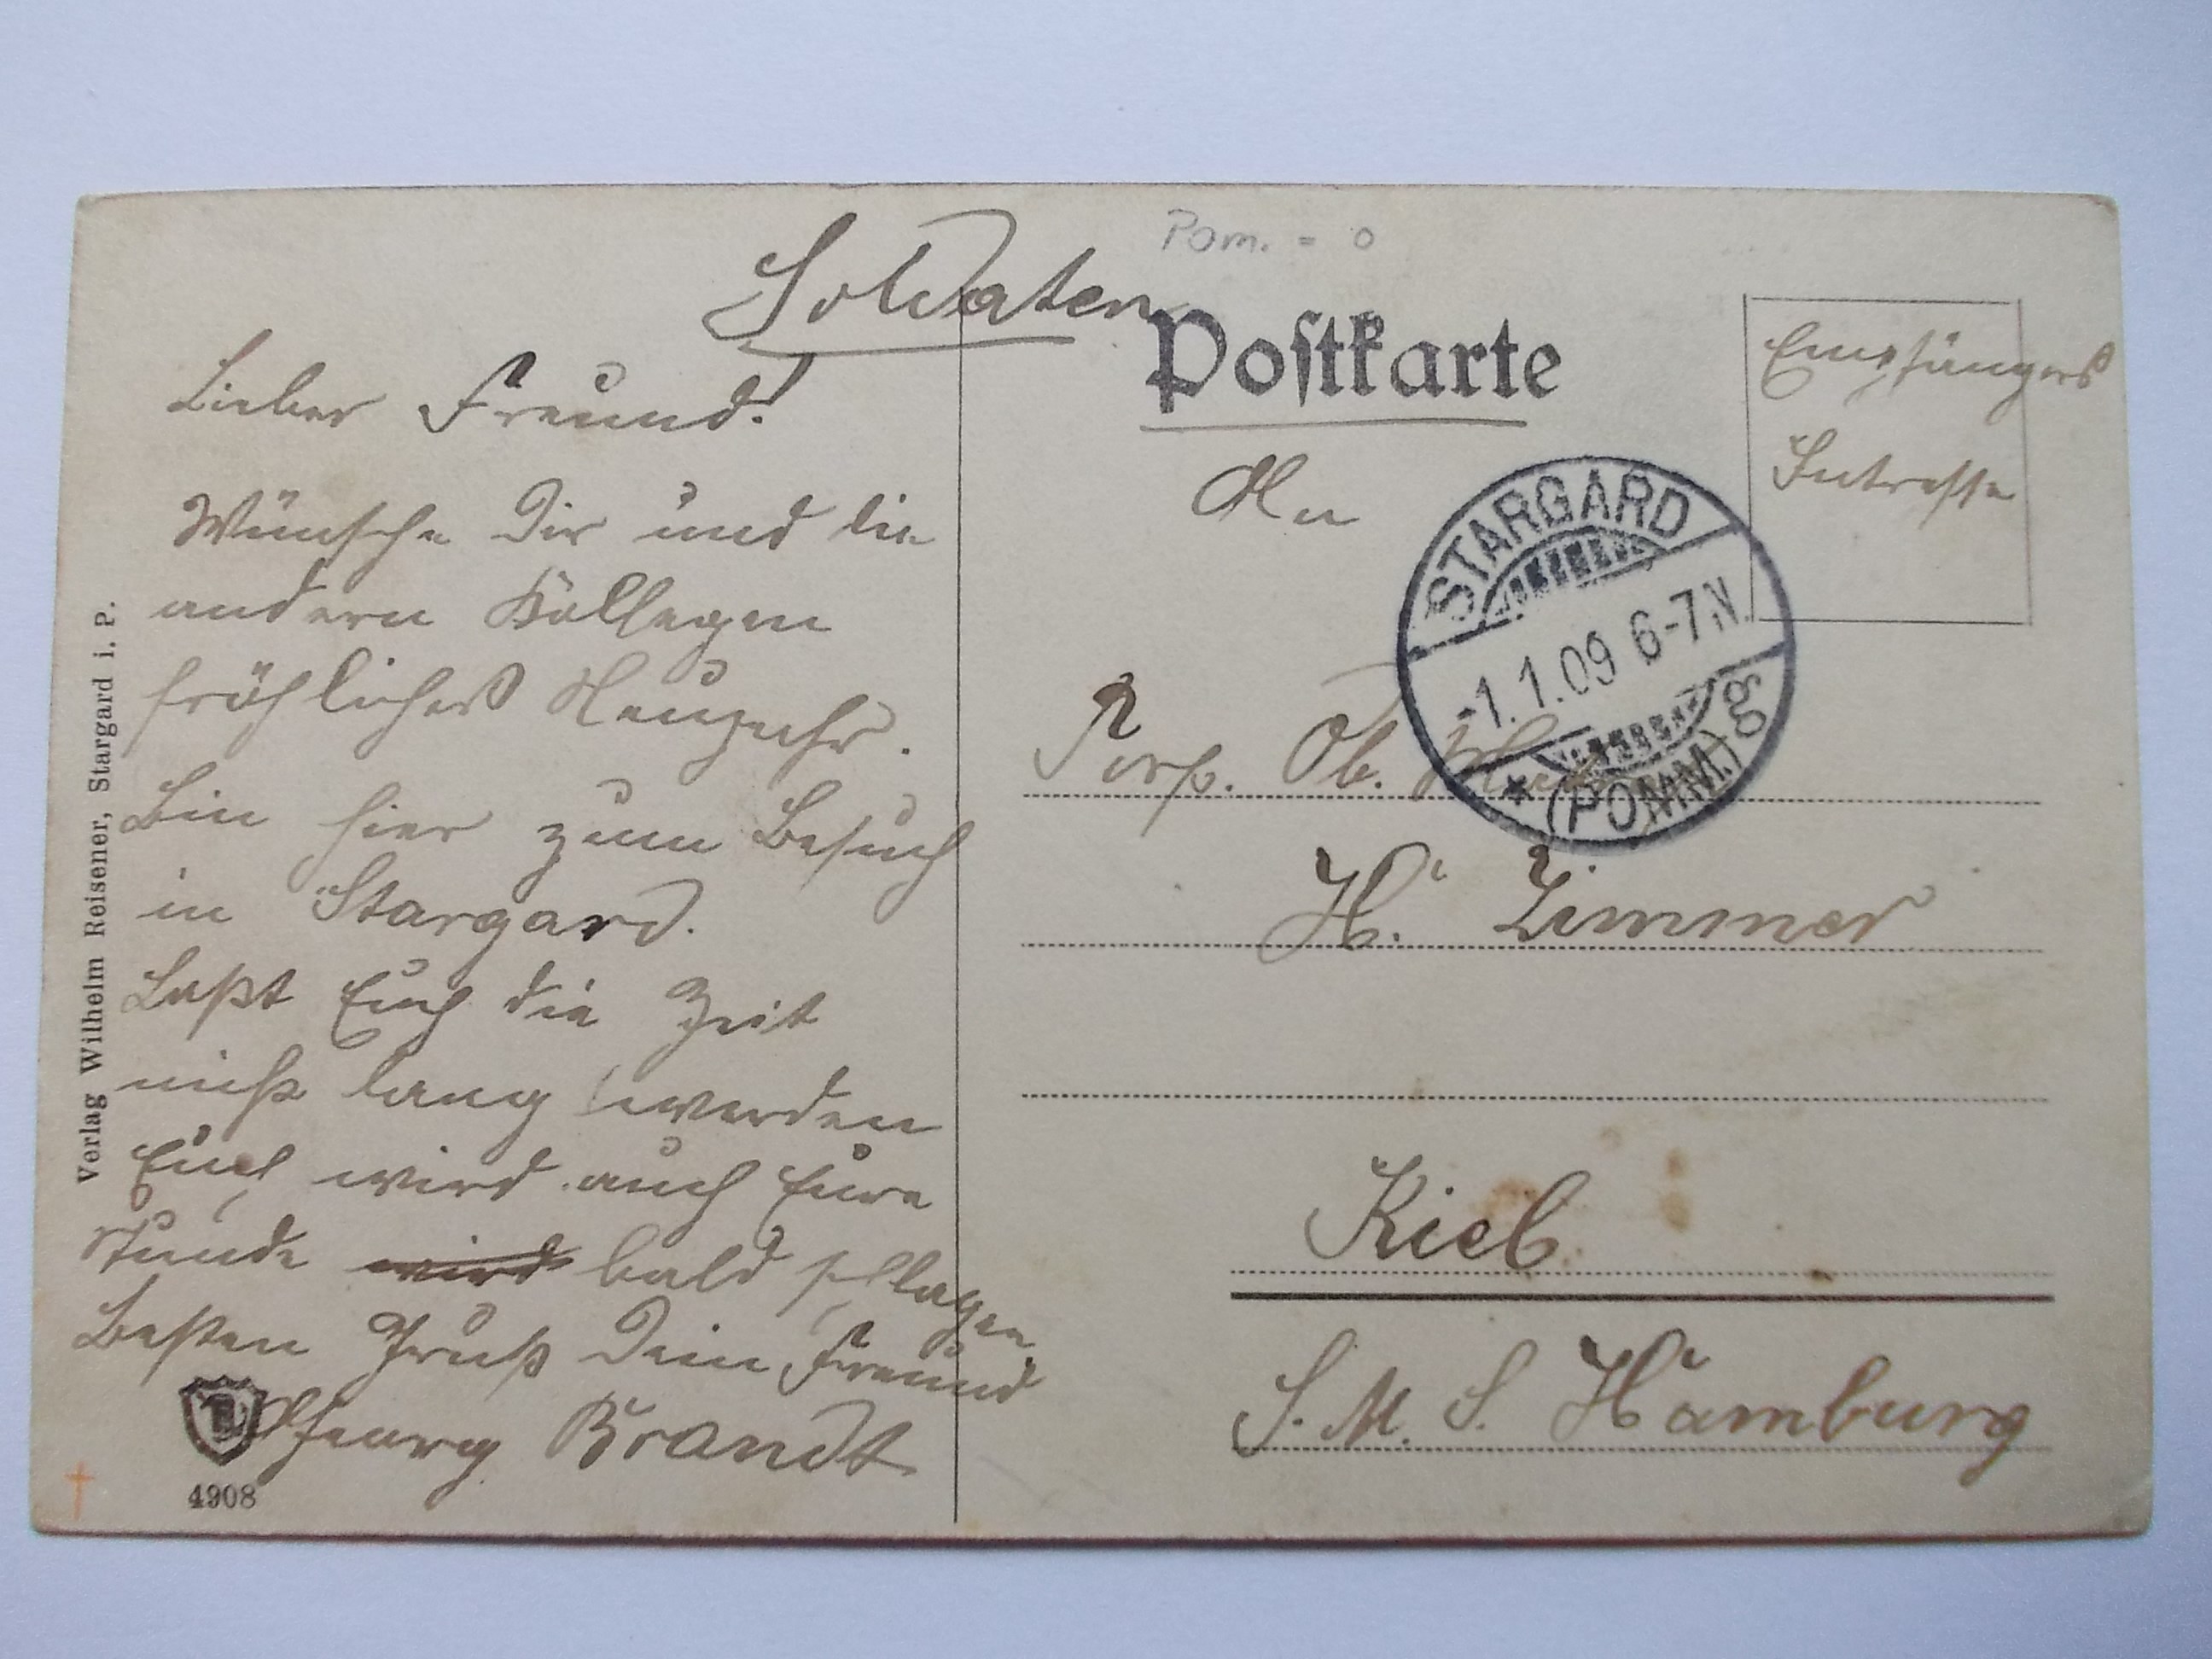 Pom. = 0
Soldaten
Postkarte
Empfängers
Intresse
An
STARGARD
-1.1.09 6-7N.
* (POMM.) g
Ob.
H. Zimmer
Kiel
S. M. S. Hamburg
Lieber Freund!
Wünsche Dir und die
andern Kollegen
fröhliches Neuzahr.
Bin hier zum Besuch
in Stargard.
Laßt Euch die Zeit
nicht lang werden
Euch wird auch Eure
Stunde wird bald schlagen.
Besten Gruß Dein Freund
Brandt
4908
Verlag Wilhelm Reisener, Stargard i. P.